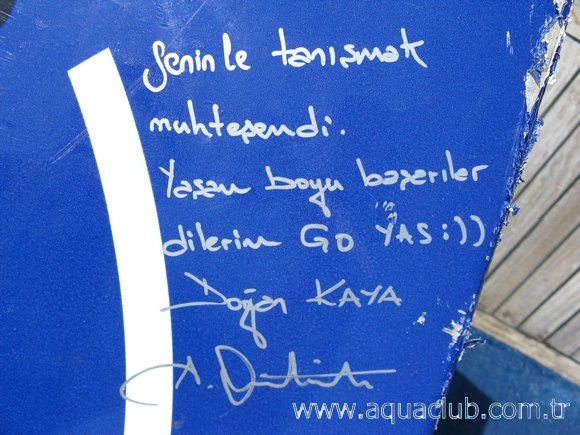 Seninle tanışmak
muhteşemdi.
Yaşam boyu başarılar
dilerim GO YAS:))
Doğan KAYA
www.aquaclub.com.tr